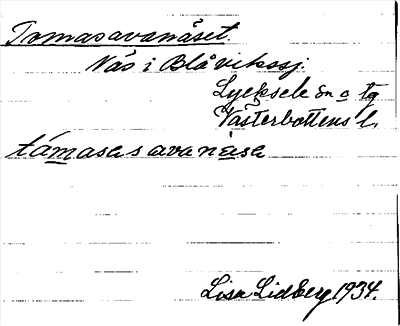 Tomasavanäset.
Näs i Blåvikssj.
Lycksele sn o tg
Västerbottens l.
támasasavanæsa
Lisa Lidberg 1934.